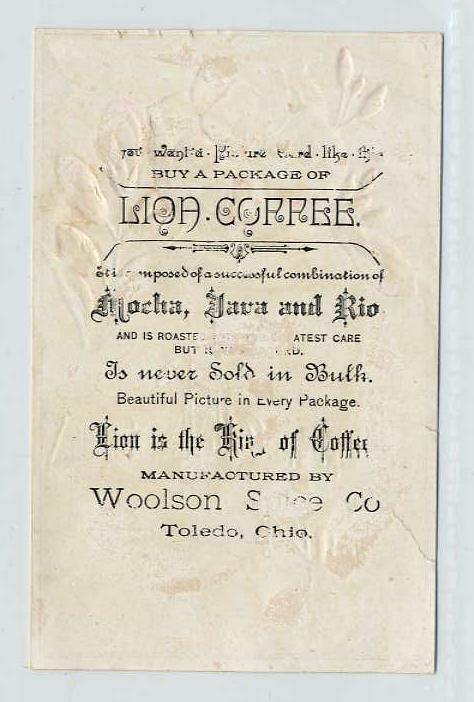 you want a Picture Card like this
BUY A PACKAGE OF
LION COFFEE.
It is composed of a successful combination of
Mocha, Java and Rio
AND IS ROASTED GREATEST CARE
BUT
Is never Sold in Bulk.
Beautiful Picture in Every Package.
Lion is the King of Coffee
MANUFACTURED BY
Woolson Spice Co
Toledo, Ohio.